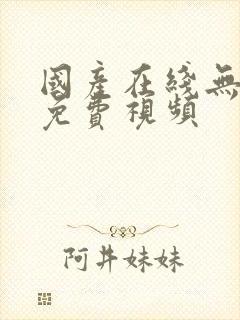 國產在綫無
免費視頻
阿井妹妹